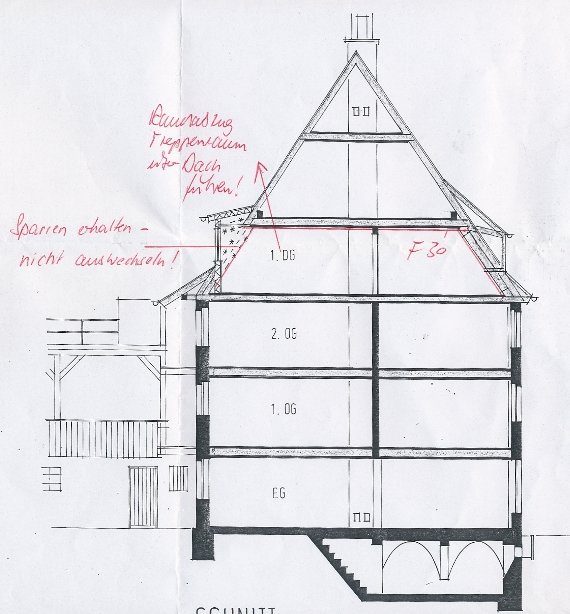 Rauchabzug
Treppenraum
über Dach
führen!
Sparren erhalten -
nicht auswechseln!
1. DG
F 30
2. OG
1. OG
EG
SCHNITT